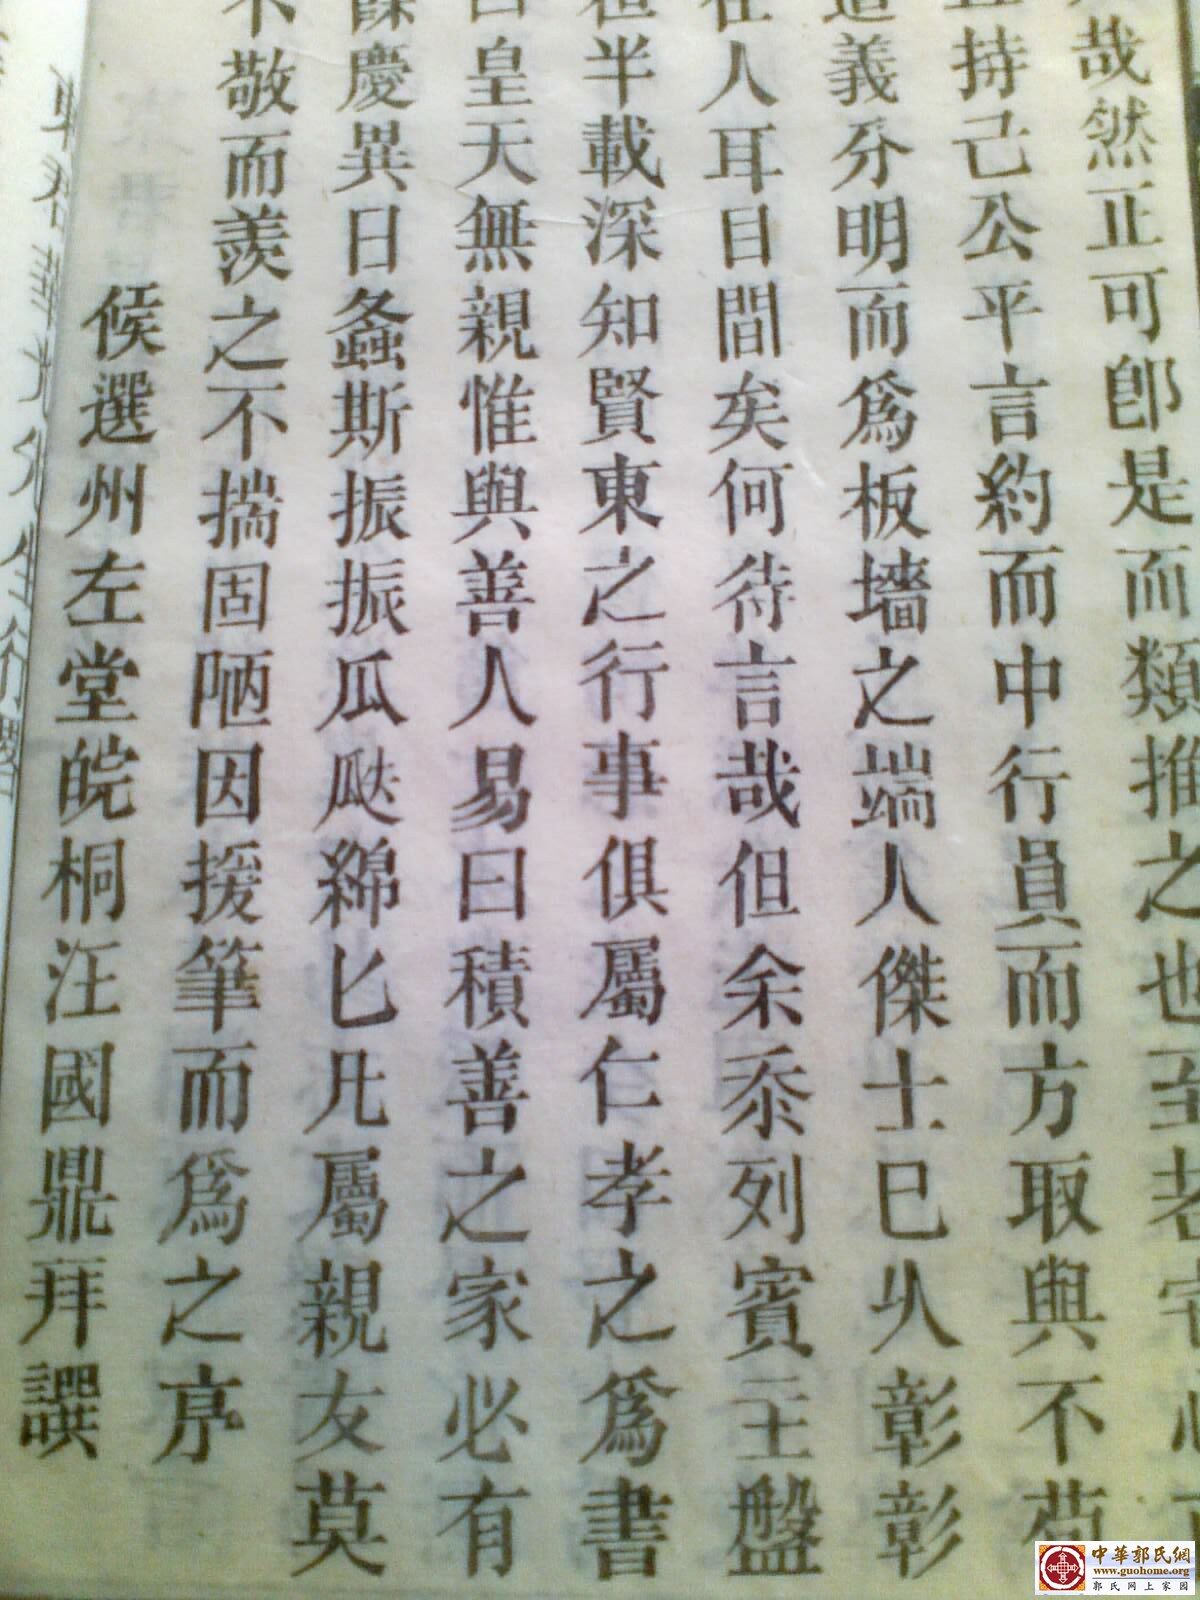 哉然正可卽是而類推之也至若宅心
持己公平言約而中行員而方取與不苟
義分明而爲板墻之端人傑士已㕥彰彰
在人耳目間矣何待言哉但余忝列賓主盤
半載深知賢東之行事俱屬仁孝之爲書
曰皇天無親惟與善人易曰積善之家必有
餘慶異日螽斯振振瓜瓞綿匕凡屬親友莫
不敬而羨之不揣固陋因援筆而爲之序
候選州左堂皖桐汪國鼎拜譔
中華郭氏網
www.guohome.org
郭氏网上家园